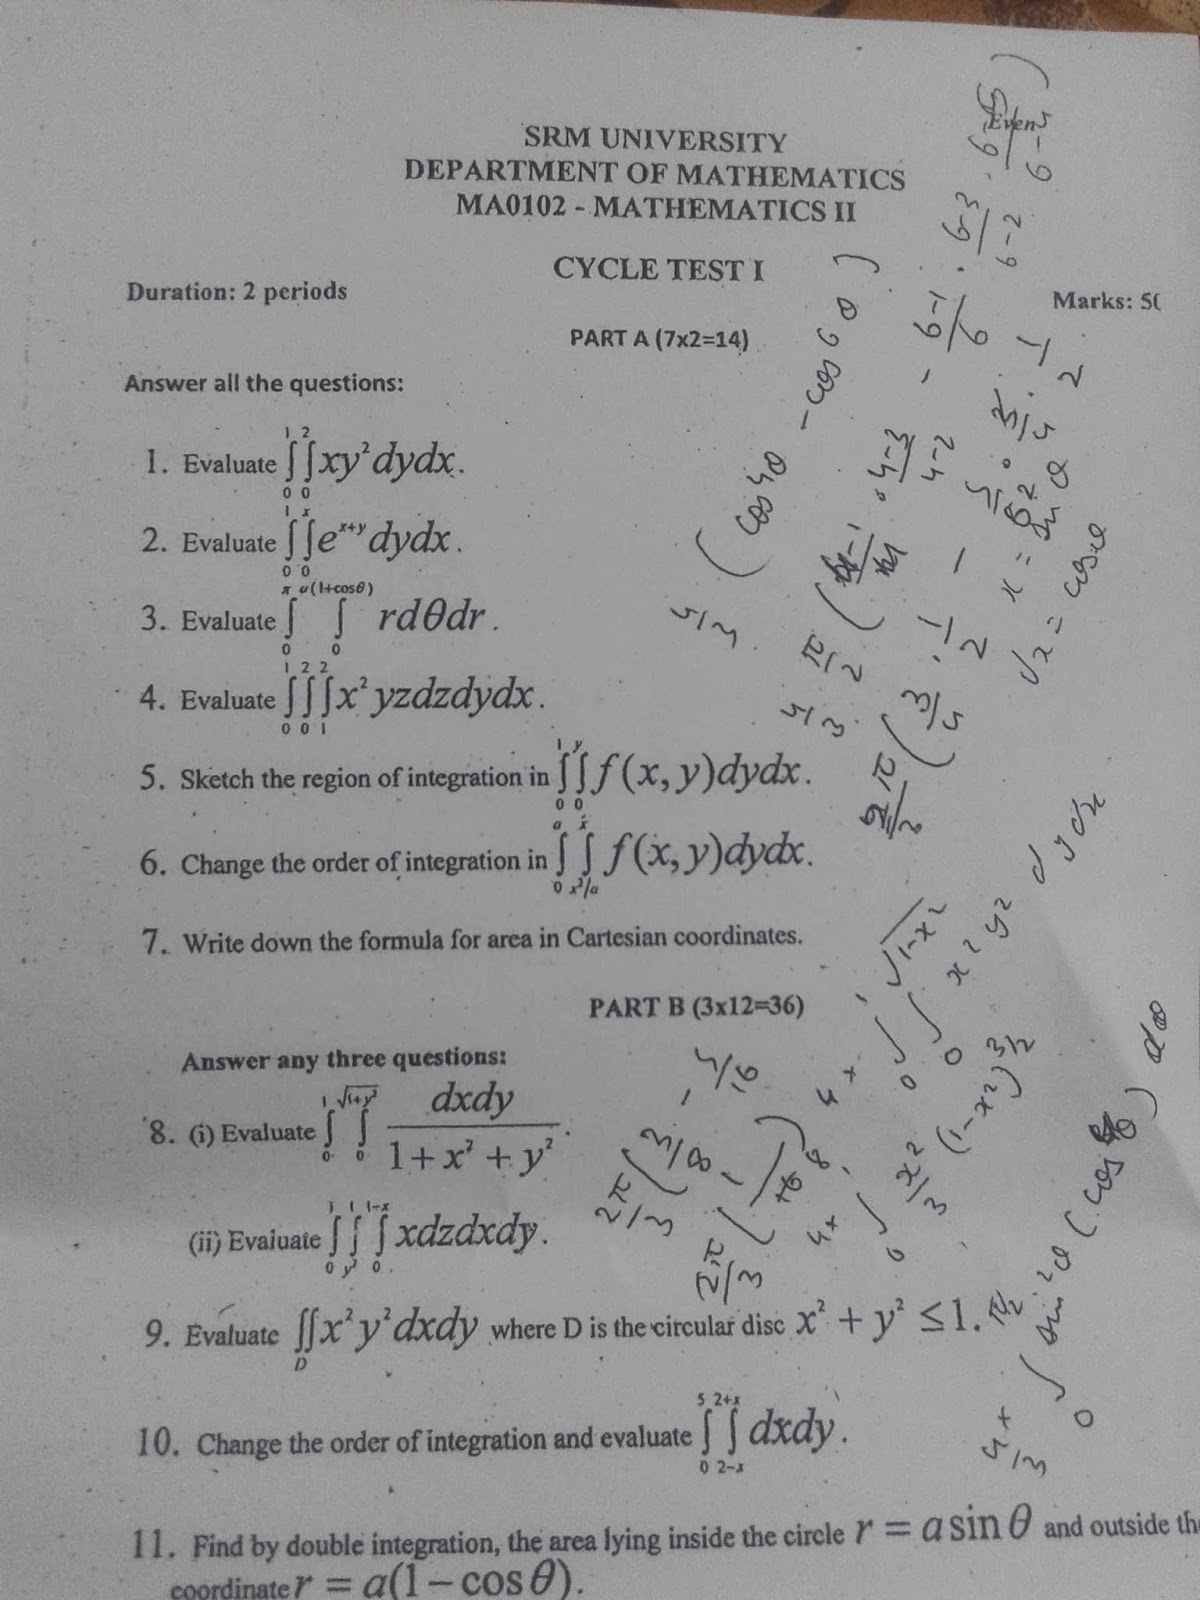 SRM UNIVERSITY
DEPARTMENT OF MATHEMATICS
MA0102 - MATHEMATICS II
Even
CYCLE TEST I
Duration: 2 periods
Marks: 50
PART A (7x2=14)
Answer all the questions:
1. Evaluate ∫₀¹∫₀² xy² dydx.
2. Evaluate ∫₀¹∫₀ˣ e^(x+y) dydx.
3. Evaluate ∫₀^π ∫₀^(a(1+cosθ)) rdθdr.
4. Evaluate ∫₀¹∫₀²∫₁² x² yzdzdydx.
5. Sketch the region of integration in ∫₀¹∫₀ʸ f(x, y)dydx.
6. Change the order of integration in ∫₀ᵃ∫_(x²/a)^x f(x, y)dydx.
7. Write down the formula for area in Cartesian coordinates.
PART B (3x12=36)
Answer any three questions:
8. (i) Evaluate ∫₀¹∫₀^√(1+y²) dxdy / (1 + x² + y²).
(ii) Evaluate ∫₀¹∫_(y²)^1∫₀^(1-x) xdzdxdy.
9. Evaluate ∬_D x² y² dxdy where D is the circular disc x² + y² ≤ 1.
10. Change the order of integration and evaluate ∫₀⁵∫_(2-x)^(2+x) dxdy.
11. Find by double integration, the area lying inside the circle r = a sin θ and outside
coordinate r = a(1 - cos θ).
(cos⁴θ - cos⁶θ)
4/3
x = sin θ
4x ∫₀¹ ∫₀^√(1-x²) x² y² dydx
4x ∫₀ x²/3 (1-x²)^(3/2)
2π/3 (3/8